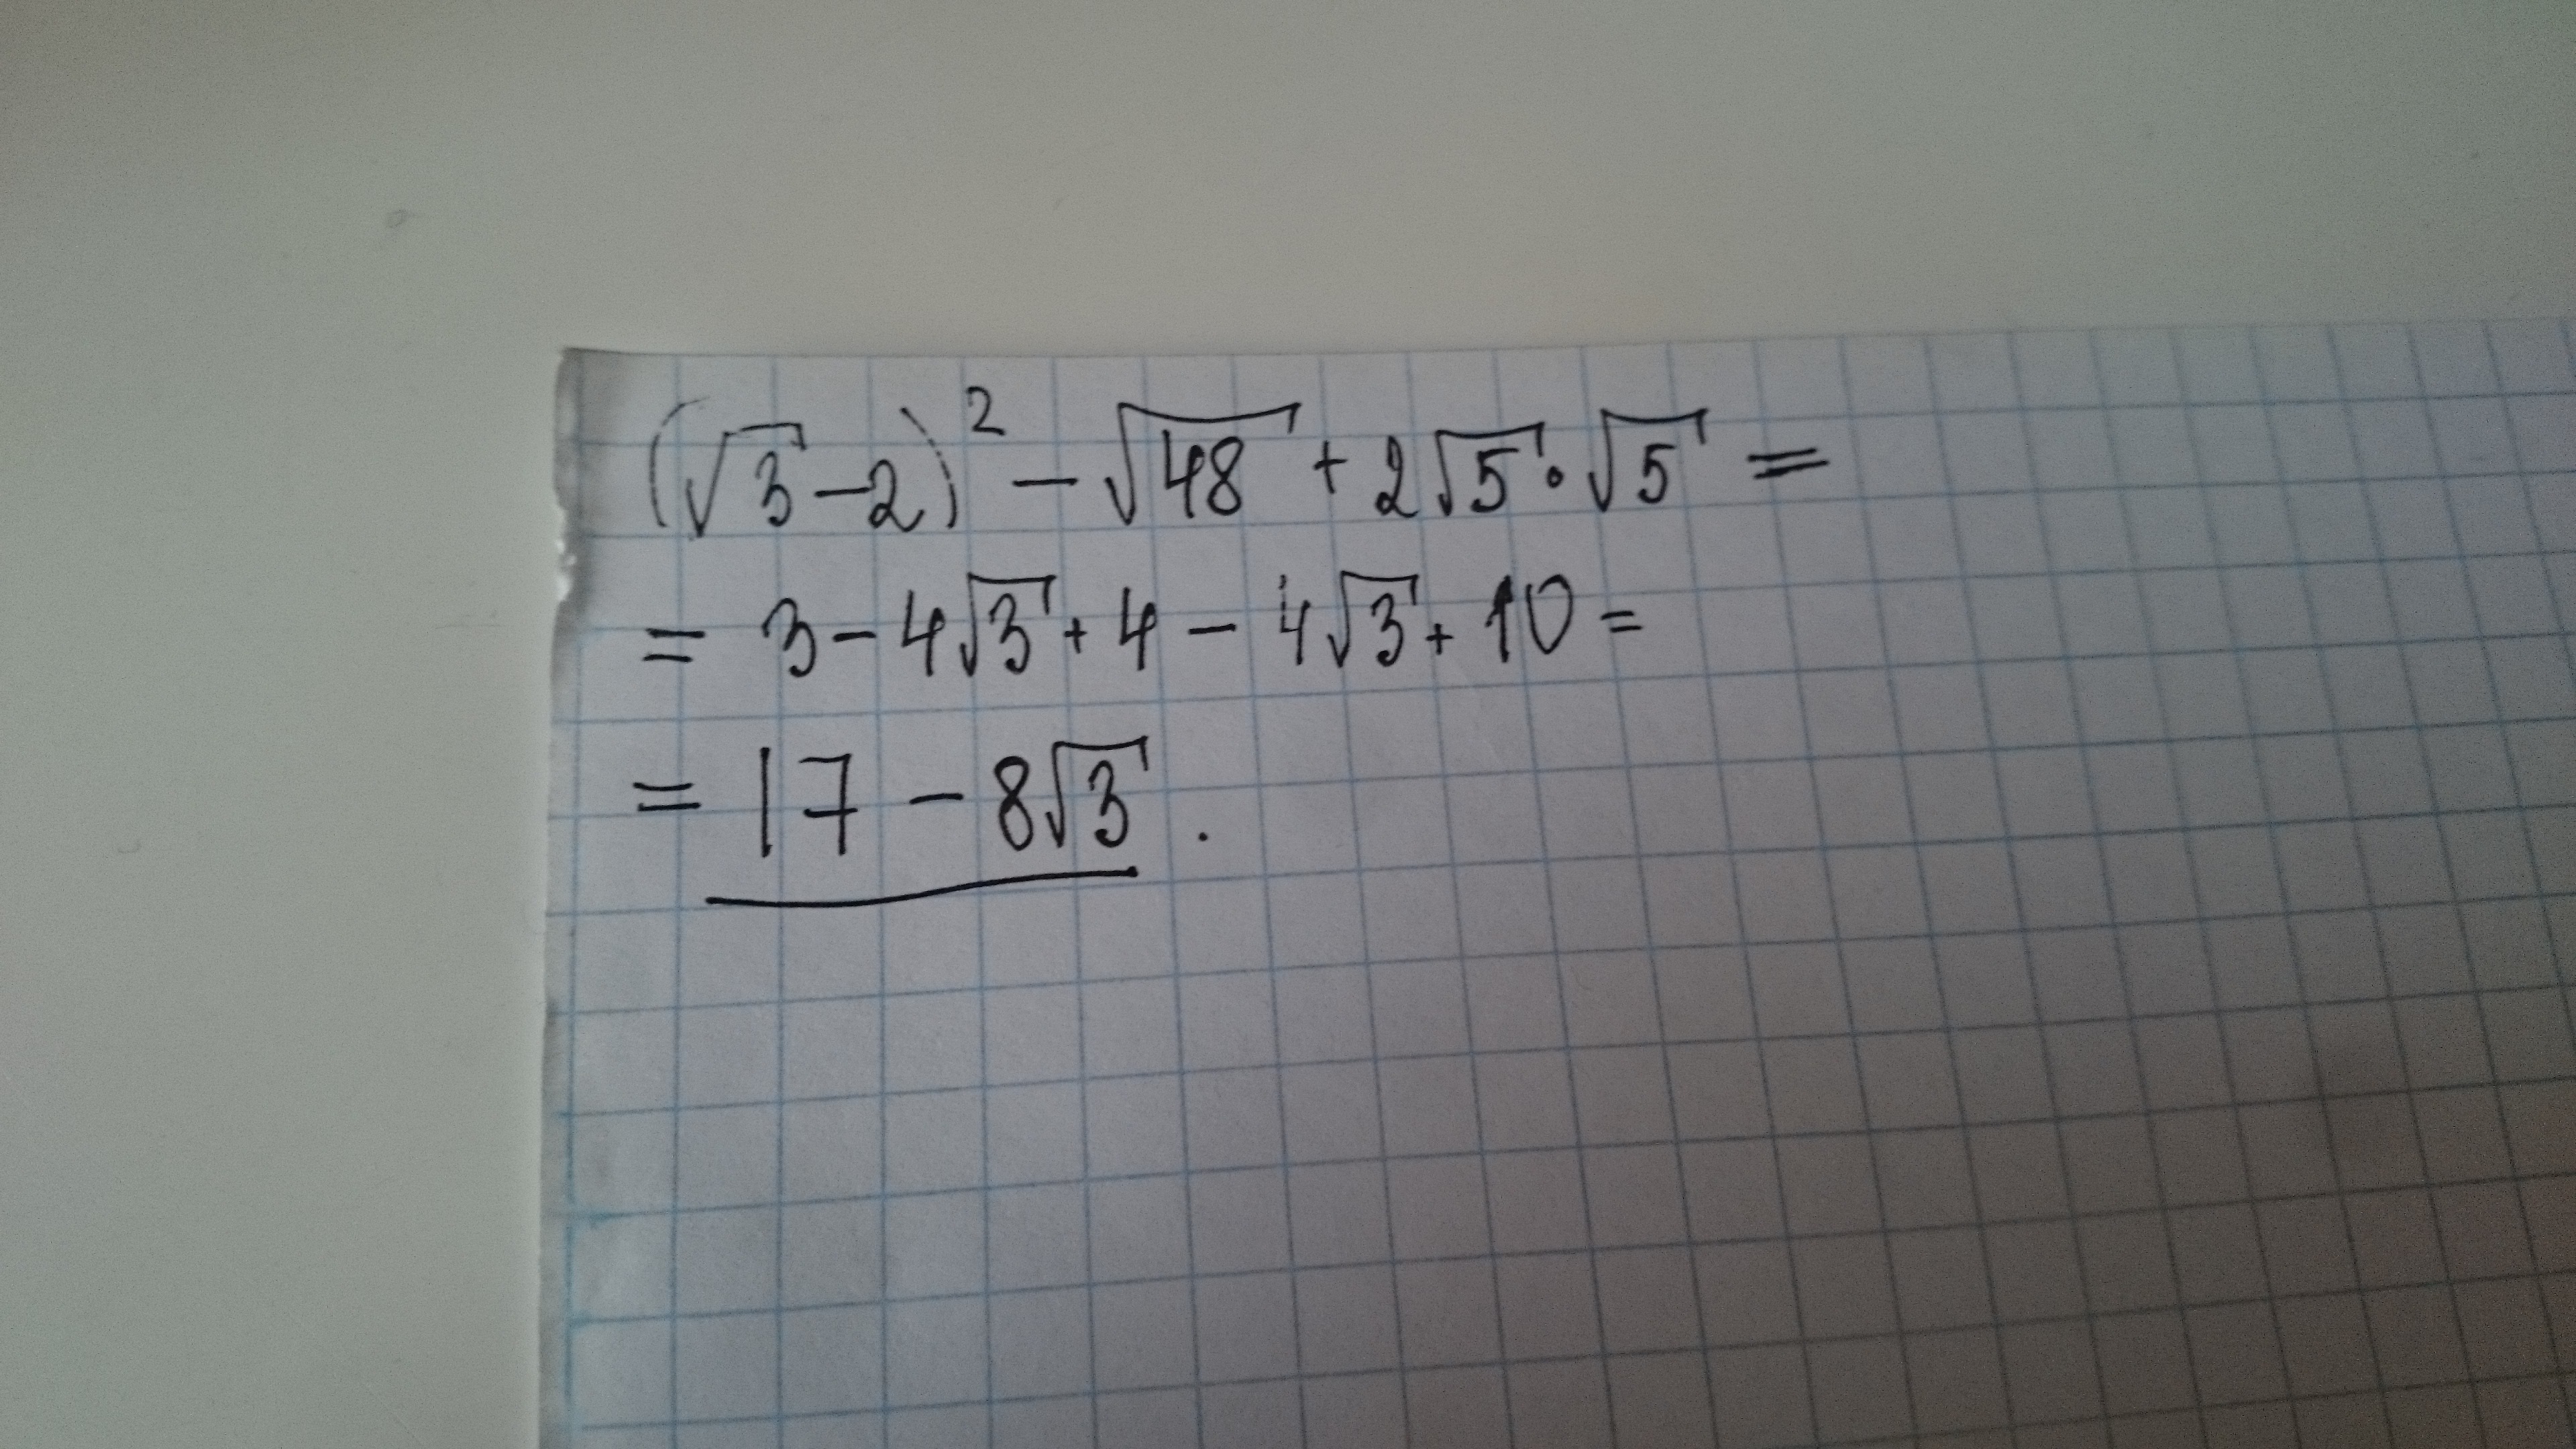 (√3-2)² - √48 + 2√5·√5 =
= 3 - 4√3 + 4 - 4√3 + 10 =
= 17 - 8√3.